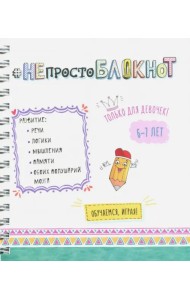 #НЕпростоБЛОКНОТ
ТОЛЬКО ДЛЯ ДЕВОЧЕК!
6-7 ЛЕТ
РАЗВИТИЕ:
• РЕЧИ
• ЛОГИКИ
• МЫШЛЕНИЯ
• ПАМЯТИ
• ОБОИХ ПОЛУШАРИЙ
МОЗГА
ОБУЧАЕМСЯ, ИГРАЯ!